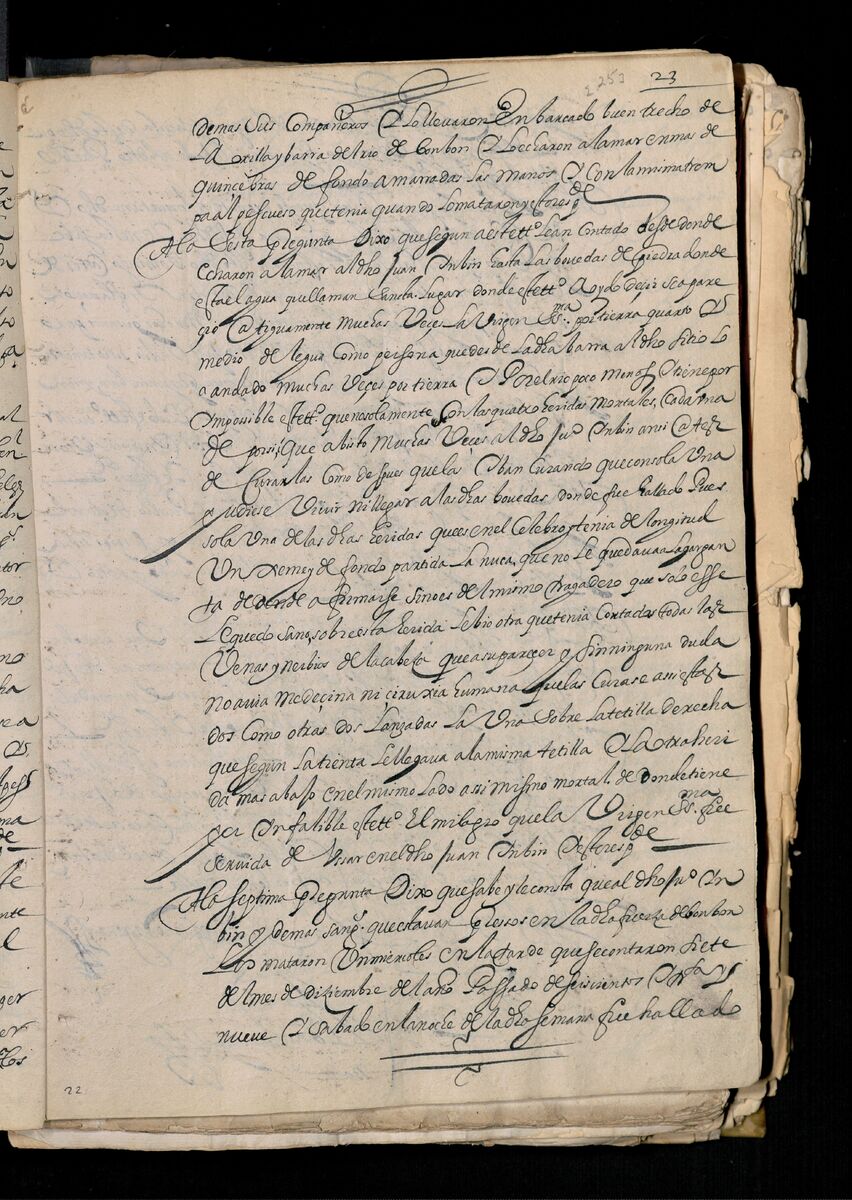 253
23
demas sus compañeros y lo llevaron enbarcado buen trecho de
la orilla y barra del rio de bonbon y lo echaron a la mar en mas de
quince bras de fondo amarradas las manos y con la misma trom
pa al pescueso que tenia quando lo mataron y esto resp.de
A la sesta pregunta dixo que segun a este tt.o lean contado desde donde
echaron a la mar al dho Juan Inbin hasta las bovedas de piedra donde
esta el agua que llaman sancta. lugar donde este tt.o a oydo desir se apare
çio antiguamente muchas veçes la Virgen ss.ma por tierra quarto y
medio de legua como persona que desde la dha barra al dho sitio lo
a andado muchas veçes por tierra y por el rio poco menos y tiene por
impossible este tt.o que no solamente con las quatro heridas mortales, cada una
de por si, que a bisto muchas veces al dho Ju.o Inbin ansi antes
de curarlas como despues que las yban curando que con sola una
pudiese vivir ni llegar a las dhas bovedas donde fue hallado Pues
sola una de las dhas heridas que es en el celebro y tenia de longitud
un xeme y de fondo partida la nuca, que no le quedava la gargan
ta de donde afirmarse sino es del mismo tragadero que solo esse
le quedo sano, sobre esta herida le bio otra que tenia cortadas todas las
venas y nerbios de la cabeça que a su pareçer y sin ninguna duda
no avia medeçina ni cirugia humana que las curase ansi estas
dos como otras dos lanzadas la una sobre la tetilla derecha
que segun la tienta le llegava a la misma tetilla y la otra heri
da mas abajo en el mismo lado asi mismo mortal. de donde tiene
por infalible este tt.o el milagro que la Virgen ss.ma fue
servida de usar en el dho Juan Inbin y esto resp.de
A la septima pregunta dixo que sabe y le consta que al dho Ju.o In
bin y demas sang.s que estavan presos en la dha fuerza de bonbon
los mataron un miercoles en la tarde que se contaron siete
del mes de diziembre del año passado de seiscientos y tr.ta y
nueve y sabado en la noche de la dha semana fue hallado
22